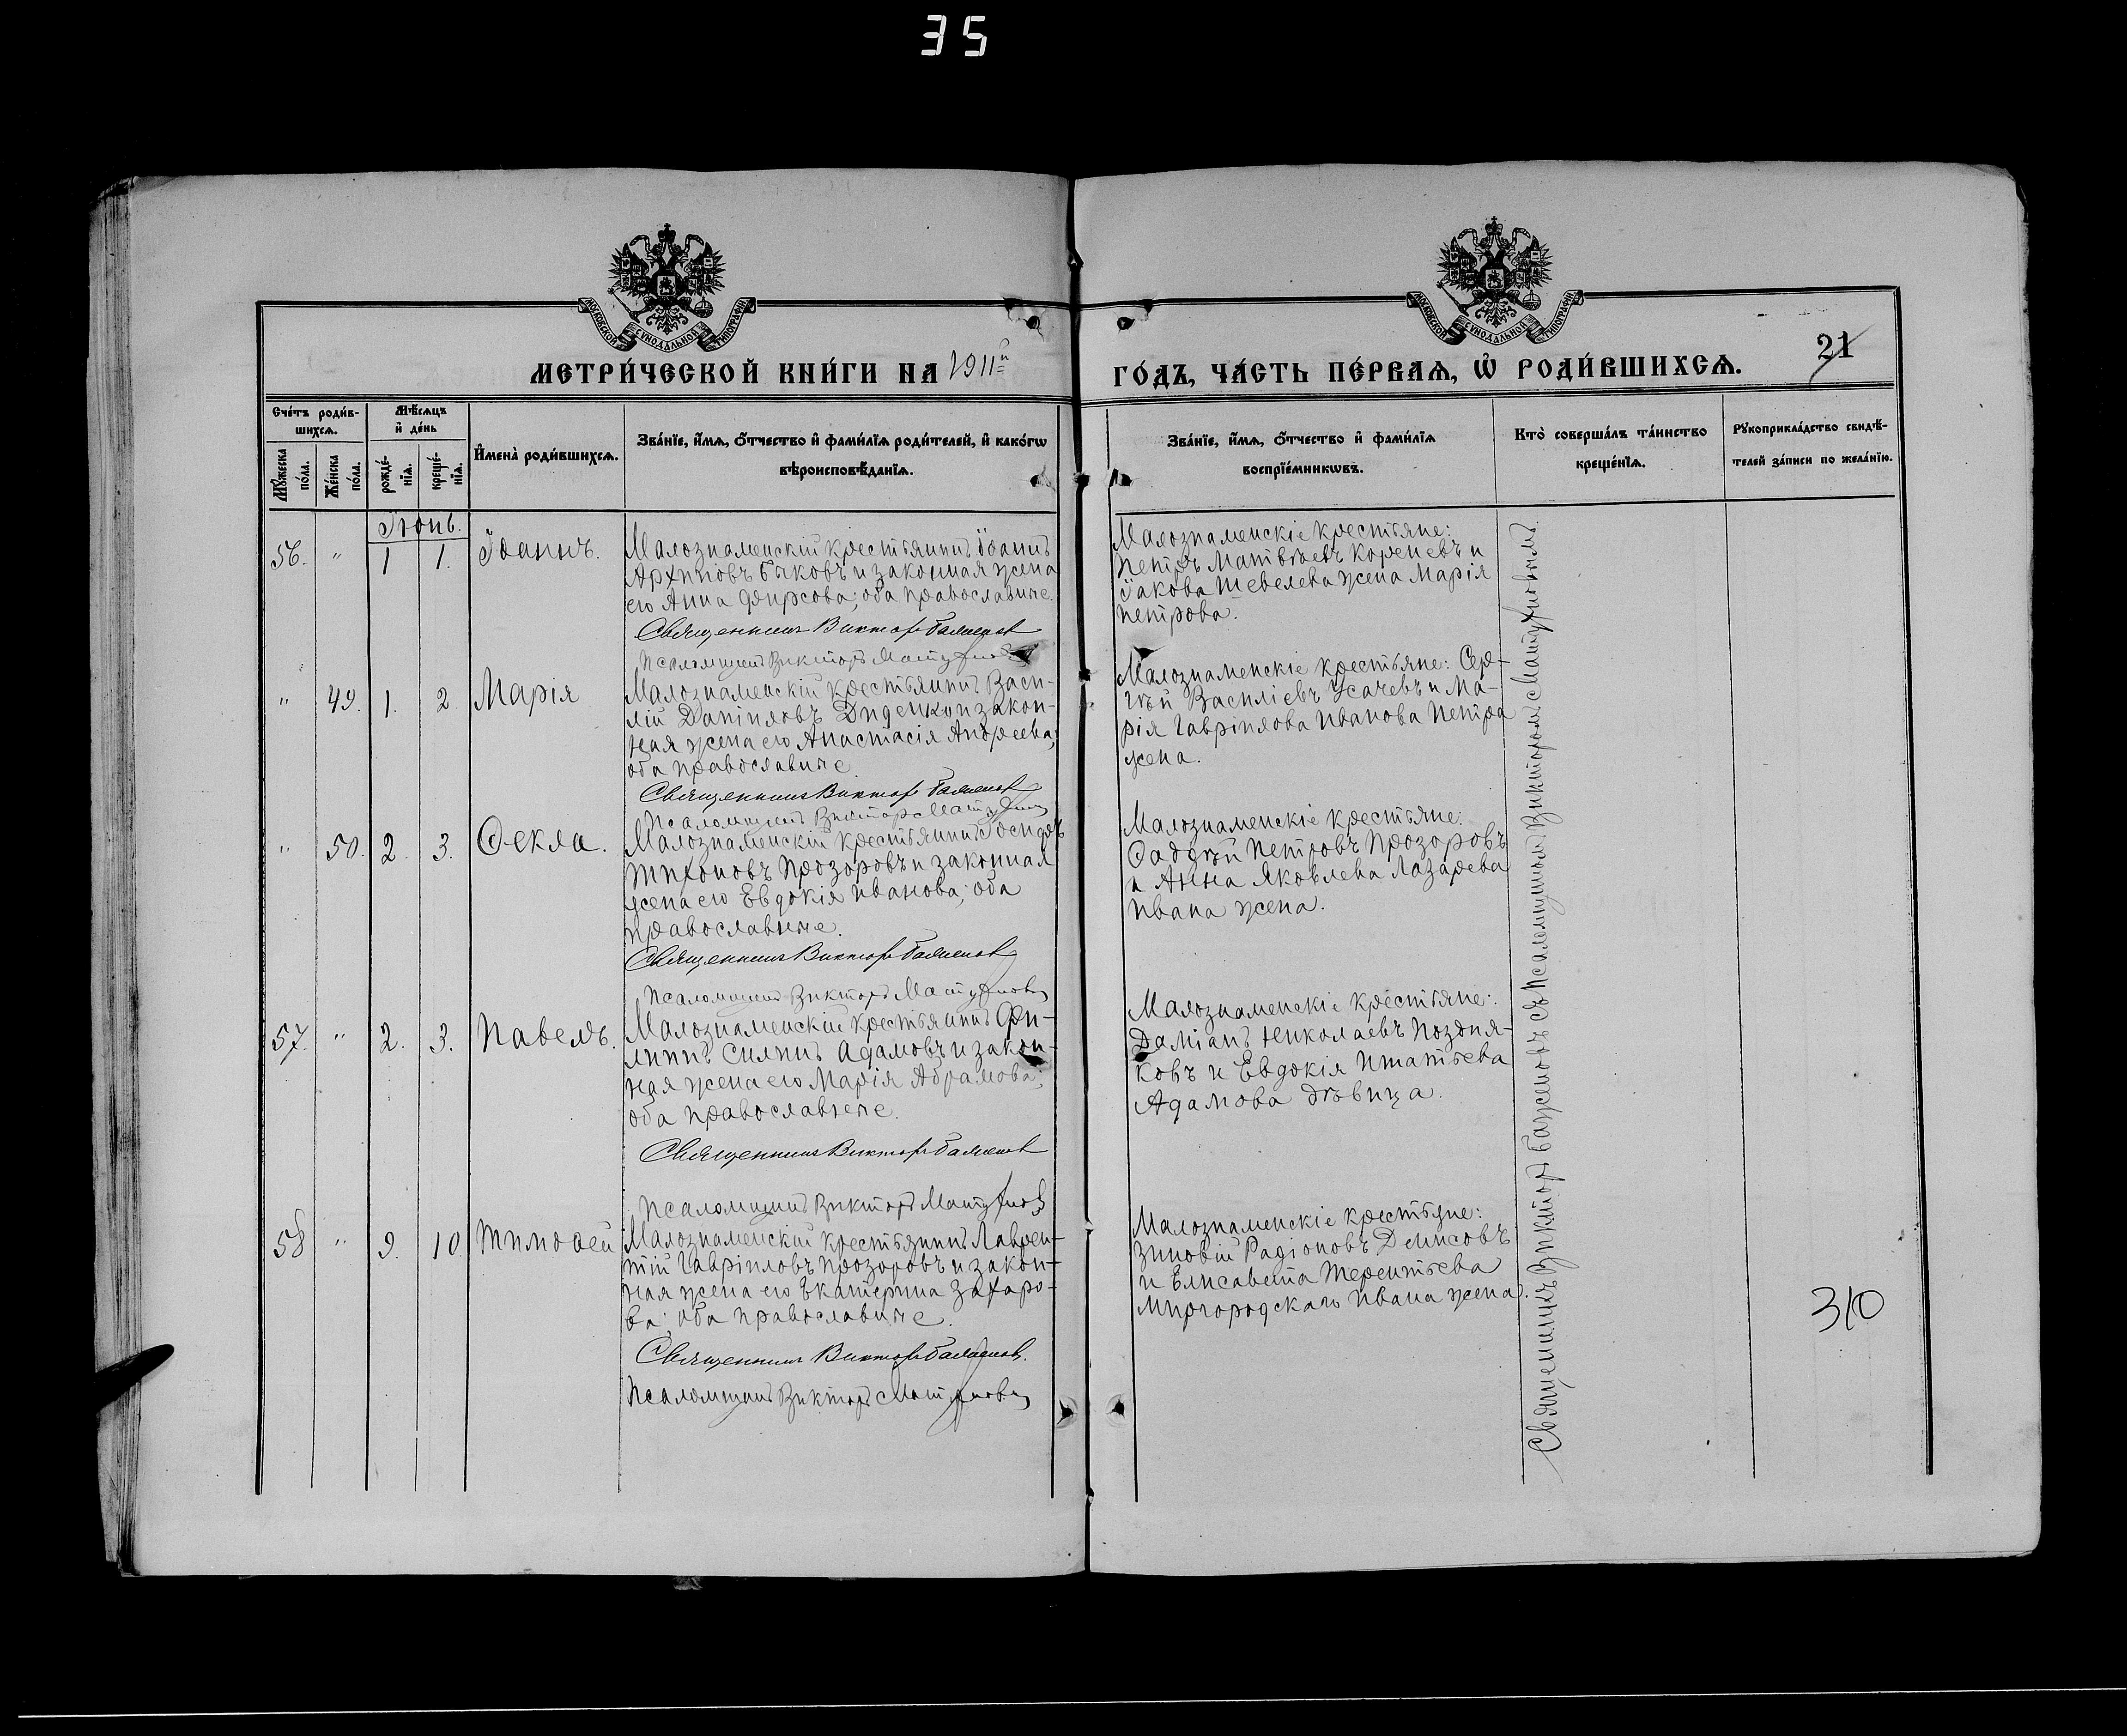 35
МОСКОВСКОЙ СѴНОДАЛЬНОЙ ТИПОГРАФІИ
МОСКОВСКОЙ СѴНОДАЛЬНОЙ ТИПОГРАФІИ
МЕТРИ́ЧЕСКОЙ КНИ́ГИ НА 1911й
ГО́ДЪ, ЧА́СТЬ ПЕ́РВАѦ, Ѽ РОДИ́ВШИХСѦ.
21
Сче́тъ роди́в-
шихсѧ.
Мꙋ́жеска
по́ла.
Же́нска
по́ла.
Мѣ́сѧцъ
и҆ де́нь
рожде́-
нїѧ.
креще́-
нїѧ.
И҆мена̀ роди́вшихсѧ.
Зва́нїе, и҆́мѧ, ѻ҆́тчество и҆ фами́лїѧ роди́телей, и҆ како́гѡ
вѣроисповѣ́данїѧ.
Зва́нїе, и҆́мѧ, ѻ҆́тчество и҆ фами́лїѧ
воспрїе́мникѡвъ.
Кто̀ соверша́лъ та́инство
креще́нїѧ.
Рꙋкоприкла́дство свидѣ́-
телей за́писи по жела́нїю.
Іюнь.
56. " 1 1. Іоаннъ.
Малознаменскій крестьянинъ Іоаннъ
Архиповъ Быковъ и законная жена
его Анна Фирсова; оба православные.
Священникъ Викторъ Баженовъ
Псаломщикъ Викторъ Матухновъ
Малознаменскіе крестьяне:
Петръ Матвѣевъ Кореневъ и
Іакова Шевелева жена Марія
Петрова.
" 49. 1. 2. Марія
Малознаменскій крестьянинъ Васи-
лій Даніиловъ Диденко и закон-
ная жена его Анастасія Андреева;
оба православные.
Священникъ Викторъ Баженовъ
Псаломщикъ Викторъ Матухновъ
Малознаменскіе крестьяне: Сер-
гѣй Василіевъ Усачевъ и Ма-
рія Гавріилова Иванова Петра
жена.
" 50. 2. 3. Ѳекла.
Малознаменскій крестьянинъ Іосифъ
Тихоновъ Прозоровъ и законная
жена его Евдокія Иванова; оба
православные.
Священникъ Викторъ Баженовъ
Псаломщикъ Викторъ Матухновъ
Малознаменскіе крестьяне:
Ѳаддѣй Петровъ Прозоровъ
и Анна Яковлева Лазарева
Ивана жена.
57. " 2. 3. Павелъ.
Малознаменскій крестьянинъ Фи-
липпъ Силинъ Адамовъ и закон-
ная жена его Марія Абрамова;
оба православные.
Священникъ Викторъ Баженовъ
Псаломщикъ Викторъ Матухновъ
Малознаменскіе крестьяне:
Даміанъ Николаевъ Поздня-
ковъ и Евдокія Игнатьева
Адамова дѣвица.
58 " 9. 10. Тимоѳей
Малознаменскій крестьянинъ Лаврен-
тій Гавріиловъ Прозоровъ и закон-
ная жена его Екатерина Захаро-
ва; оба православные.
Священникъ Викторъ Баженовъ.
Псаломщикъ Викторъ Матухновъ
Малознаменскіе крестьяне:
Зиновій Радіоновъ Денисовъ
и Елисавета Терентьева
Миргородскаго Ивана жена.
Священникъ Викторъ Баженовъ съ псаломщикомъ Викторомъ Матухновымъ.
310